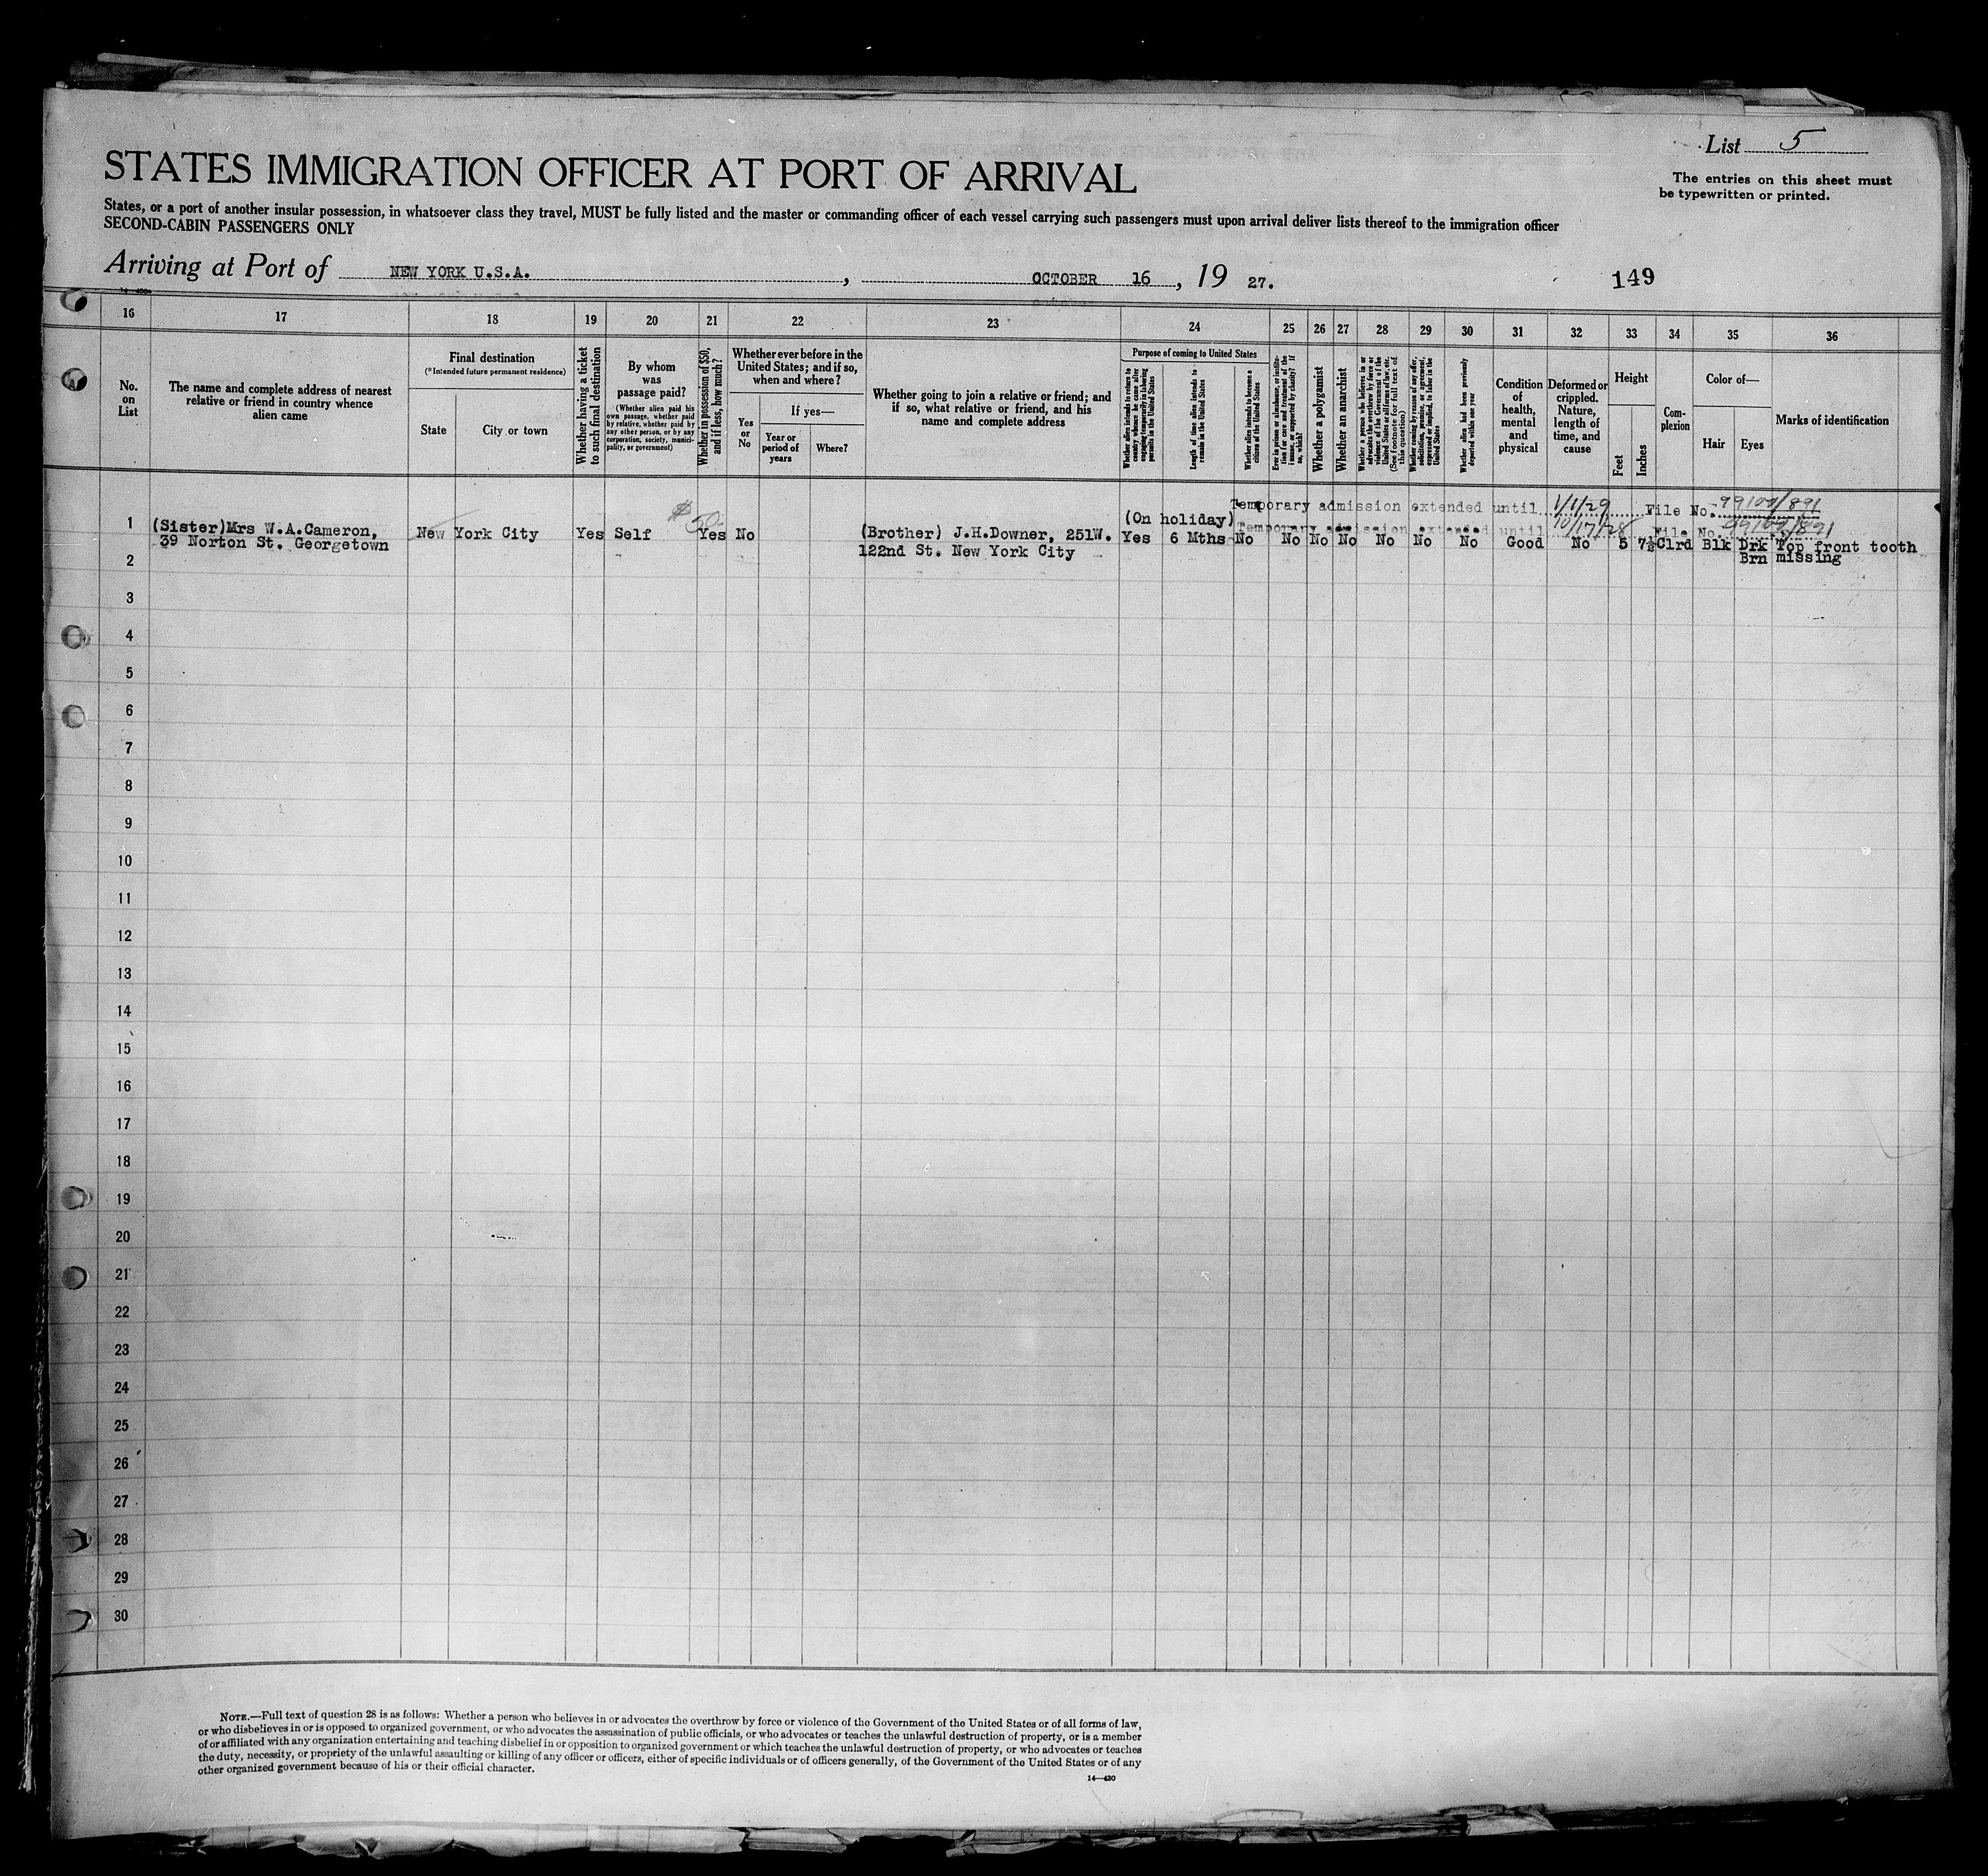 List 5
The entries on this sheet must
be typewritten or printed.
STATES IMMIGRATION OFFICER AT PORT OF ARRIVAL
States, or a port of another insular possession, in whatsoever class they travel, MUST be fully listed and the master or commanding officer of each vessel carrying such passengers must upon arrival deliver lists thereof to the immigration officer
SECOND-CABIN PASSENGERS ONLY
Arriving at Port of NEW YORK U.S.A., OCTOBER 16, 19 27.
149
16 17 18 19 20 21 22 23 24 25 26 27 28 29 30 31 32 33 34 35 36
No.
on
List
The name and complete address of nearest
relative or friend in country whence
alien came
Final destination
(*Intended future permanent residence)
State
City or town
Whether having a ticket
to such final destination
By whom
was
passage paid?
(Whether alien paid his
own passage, whether paid
by relative, whether paid by
any other person, or by any
corporation, society, munici-
pality, or government)
Whether in possession of $50,
and if less, how much?
Whether ever before in the
United States; and if so,
when and where?
Yes
or
No
If yes—
Year or
period of
years
Where?
Whether going to join a relative or friend; and
if so, what relative or friend, and his
name and complete address
Purpose of coming to United States
Whether alien intends to return to
country whence he came after
engaging temporarily in laboring
pursuits in the United States
Length of time alien intends to
remain in the United States
Whether alien intends to become a
citizen of the United States
Ever in prison or almshouse, or institu-
tion for care and treatment of the
insane, or supported by charity? If
so, which?
Whether a polygamist
Whether an anarchist
Whether a person who believes in or
advocates the overthrow by force or
violence of the Government of the
United States or all forms of law, etc.
(See footnote for full text of
this question)
Whether coming by reason of any offer,
solicitation, promise, or agreement,
expressed or implied, to labor in the
United States
Whether alien had been previously
deported within one year
Condition
of
health,
mental
and
physical
Deformed or
crippled.
Nature,
length of
time, and
cause
Height
Feet
Inches
Com-
plexion
Color of—
Hair
Eyes
Marks of identification
Temporary admission extended until 1/1/29 File No. 99109/891
Temporary admission extended until 10/17/28 File No. 99109/891
1 (Sister)Mrs W.A.Cameron, New York City Yes Self $50 Yes No (Brother) J.H.Downer, 251W. (On holiday) Yes 6 Mths No No No No No No No Good No 5 7½ Clrd Blk Drk Top front tooth
39 Norton St. Georgetown 122nd St. New York City Brn missing
2
3
4
5
6
7
8
9
10
11
12
13
14
15
16
17
18
19
20
21
22
23
24
25
26
27
28
29
30
NOTE.—Full text of question 28 is as follows: Whether a person who believes in or advocates the overthrow by force or violence of the Government of the United States or of all forms of law,
or who disbelieves in or is opposed to organized government, or who advocates the assassination of public officials, or who advocates or teaches the unlawful destruction of property, or is a member
of or affiliated with any organization entertaining and teaching disbelief in or opposition to organized government or which teaches the unlawful destruction of property, or who advocates or teaches
the duty, necessity, or propriety of the unlawful assaulting or killing of any officer or officers, either of specific individuals or of officers generally, of the Government of the United States or of any
other organized government because of his or their official character.
14—430